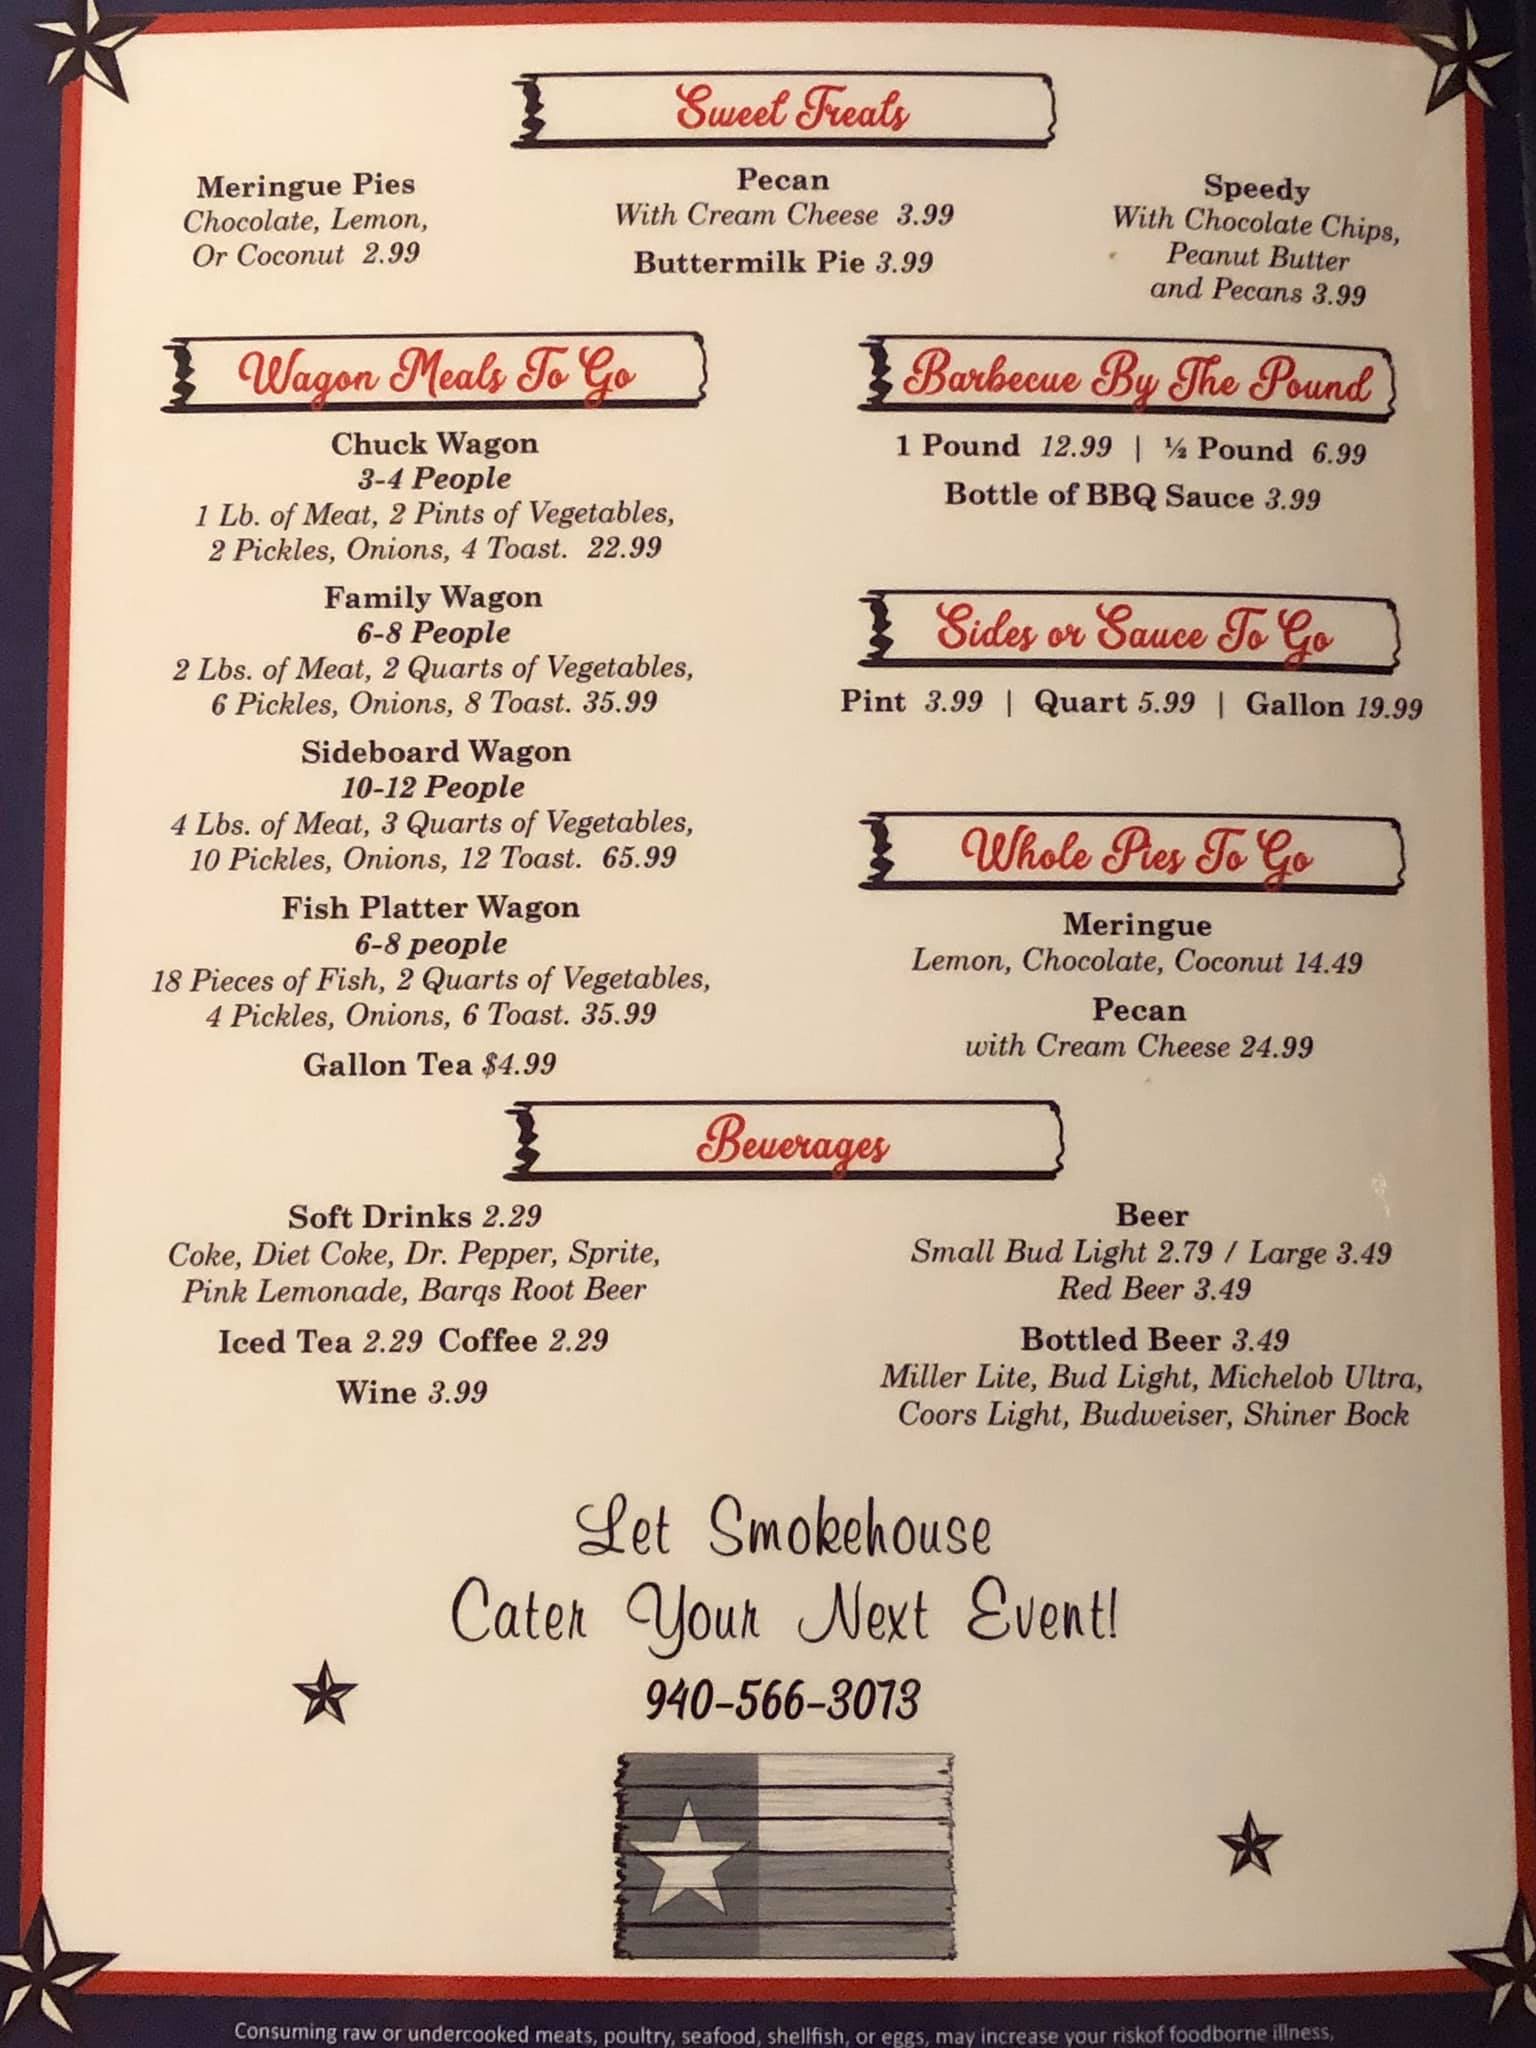 Sweet Treats
Meringue Pies
Chocolate, Lemon,
Or Coconut 2.99
Pecan
With Cream Cheese 3.99
Buttermilk Pie 3.99
Speedy
With Chocolate Chips,
Peanut Butter
and Pecans 3.99
Wagon Meals To Go
Chuck Wagon
3-4 People
1 Lb. of Meat, 2 Pints of Vegetables,
2 Pickles, Onions, 4 Toast. 22.99
Family Wagon
6-8 People
2 Lbs. of Meat, 2 Quarts of Vegetables,
6 Pickles, Onions, 8 Toast. 35.99
Sideboard Wagon
10-12 People
4 Lbs. of Meat, 3 Quarts of Vegetables,
10 Pickles, Onions, 12 Toast. 65.99
Fish Platter Wagon
6-8 people
18 Pieces of Fish, 2 Quarts of Vegetables,
4 Pickles, Onions, 6 Toast. 35.99
Gallon Tea $4.99
Barbecue By The Pound
1 Pound 12.99 | ½ Pound 6.99
Bottle of BBQ Sauce 3.99
Sides or Sauce To Go
Pint 3.99 | Quart 5.99 | Gallon 19.99
Whole Pies To Go
Meringue
Lemon, Chocolate, Coconut 14.49
Pecan
with Cream Cheese 24.99
Beverages
Soft Drinks 2.29
Coke, Diet Coke, Dr. Pepper, Sprite,
Pink Lemonade, Barqs Root Beer
Iced Tea 2.29 Coffee 2.29
Wine 3.99
Beer
Small Bud Light 2.79 / Large 3.49
Red Beer 3.49
Bottled Beer 3.49
Miller Lite, Bud Light, Michelob Ultra,
Coors Light, Budweiser, Shiner Bock
Let Smokehouse
Cater Your Next Event!
940-566-3073
Consuming raw or undercooked meats, poultry, seafood, shellfish, or eggs, may increase your riskof foodborne illness,